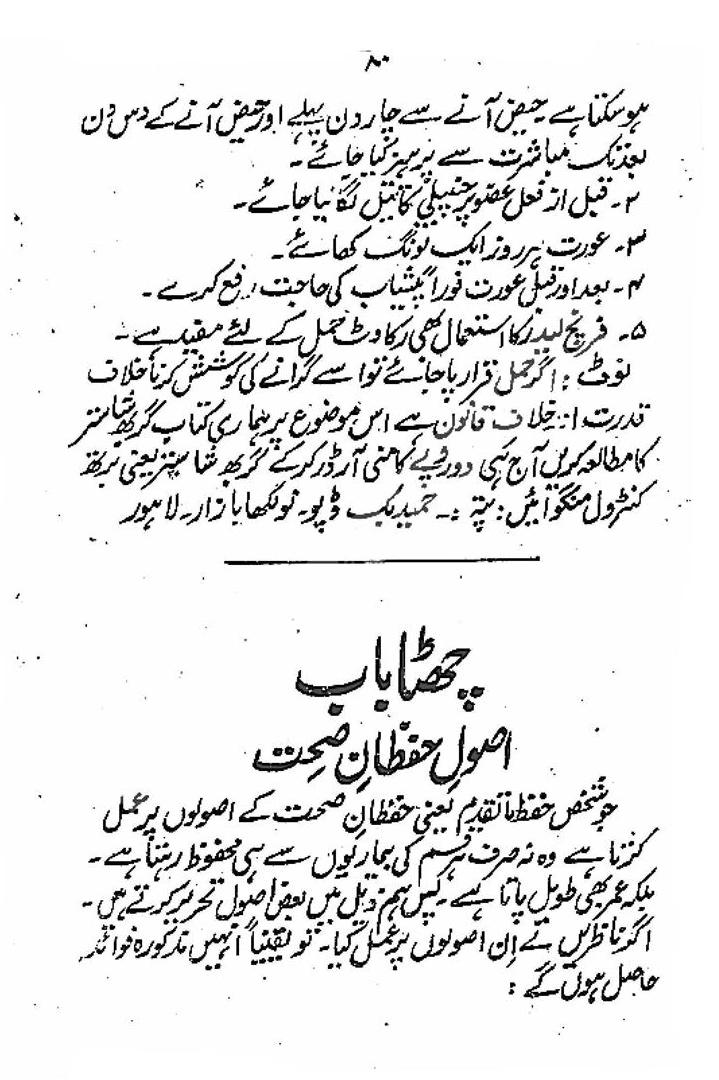 ۸۰
ہوسکتا ہے حیض آنے سے چار دن پہلے اور حیض آنے کے دس دن
بعد تک مباشرت سے پرہیز کیا جائے ۔
۲۔ قبل از فعل عضو پر چنبیلی کا تیل لگا لیا جائے ۔
۳۔ عورت ہر روز ایک لونگ کھائے ۔
۴۔ بعد از فعل عورت فوراً پیشاب کی حاجت رفع کرے ۔
۵۔ فرنچ لیدر کا استعمال بھی رکاوٹ حمل کے لئے مفید ہے ۔
نوٹ : اگر حمل قرار پا جائے تو اسے گرانے کی کوشش کرنا خلاف
قدرت اور خلاف قانون ہے اس موضوع پر ہماری کتاب گربھ شاستر
کا مطالعہ کریں آج ہی دو روپے کا منی آرڈر کرکے گربھ شاستر یعنی برتھ
کنٹرول منگوائیں : پتہ :۔ حمید بک ڈپو۔ نولکھا بازار۔ لاہور
چھٹا باب
اصولِ حفظانِ صحت
جو شخص حفظ ماتقدم یعنی حفظانِ صحت کے اصولوں پر عمل
کرتا ہے وہ نہ صرف ہر قسم کی بیماریوں سے ہی محفوظ رہتا ہے ۔
بلکہ عمر بھی طویل پاتا ہے ۔ پس ہم ذیل میں بعض اصول تحریر کرتے ہیں ۔
اگر ناظرین نے اِن اصولوں پر عمل کیا۔ تو یقیناً انہیں مذکورہ فوائد
حاصل ہوں گے :